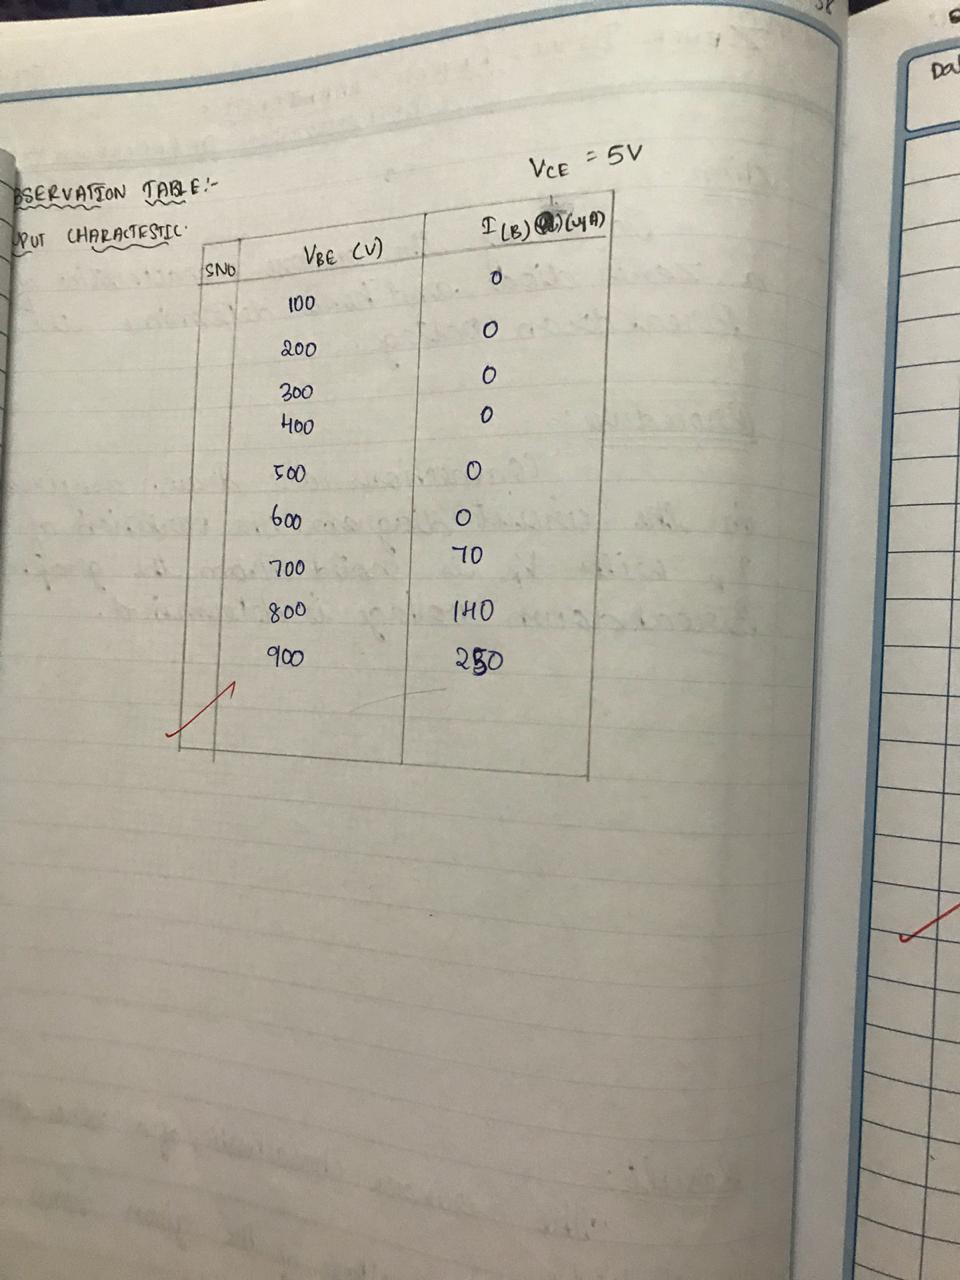 VCE = 5V
BSERVATION TABLE:-
PUT CHARACTESTIC.
SNO VBE (V) I(B) (μA)
100 0
200 0
300 0
400 0
500 0
600 0
700 70
800 140
900 250
Dat